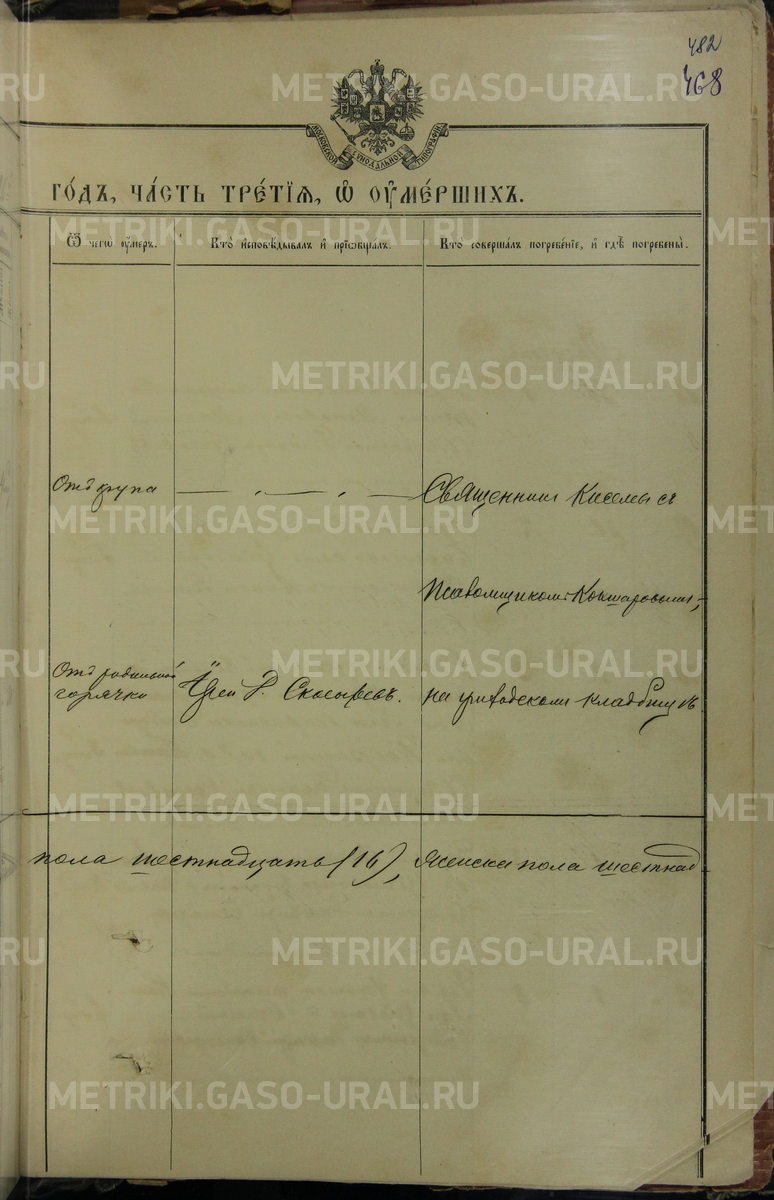 482
468
МОСКОВСКОЙ СѴНОДАЛЬНОЙ ТИПОГРАФІИ
ГО́ДЪ, ЧА́СТЬ ТРЕ́ТІЯ, Ѽ ОУ҆МЕ́РШИХЪ.
Ѿ чегѡ̀ ᲂу҆́меръ.
Кто̀ и҆сповѣ́дывалъ и҆ прїѡбща́лъ.
Кто̀ соверша́лъ погребе́нїе, и҆ гдѣ̀ погребены̀.
Отъ крупа
Священникъ Кисель съ
Псаломщикомъ Кошаровымъ,
Отъ родильной
горячки
Іерей Скосыревъ.
на приходскомъ кладбищѣ.
пола шестнадцать (16), женска пола шестнад-
METRIKI.GASO-URAL.RU